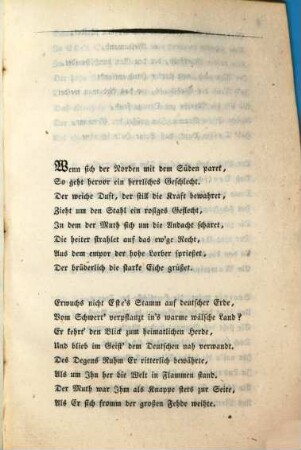 Wenn sich der Norden mit dem Süden paret,
So geht hervor ein herrliches Geschlecht.
Der weiche Duft, der still die Kraft bewahret,
Zieht um den Stahl ein rosiges Geflecht,
In dem der Muth sich um die Andacht scharet,
Die heiter strahlet auf das ew'ge Recht,
Aus dem empor der hohe Lorber sprießet,
Der brüderlich die starke Eiche grüßet.
Erwuchs nicht Este's Stamm auf deutscher Erde,
Vom Schwert' verpflanzt in's warme wälsche Land?
Er kehrt den Blick zum heimatlichen Herde,
Und blieb im Geist' dem Deutschen nah verwandt.
Des Degens Ruhm Er ritterlich bewährte,
Als um Ihn her die Welt in Flammen stand.
Der Muth war Ihm als Knappe stets zur Seite,
Als Er sich fromm der großen Fehde weihte.